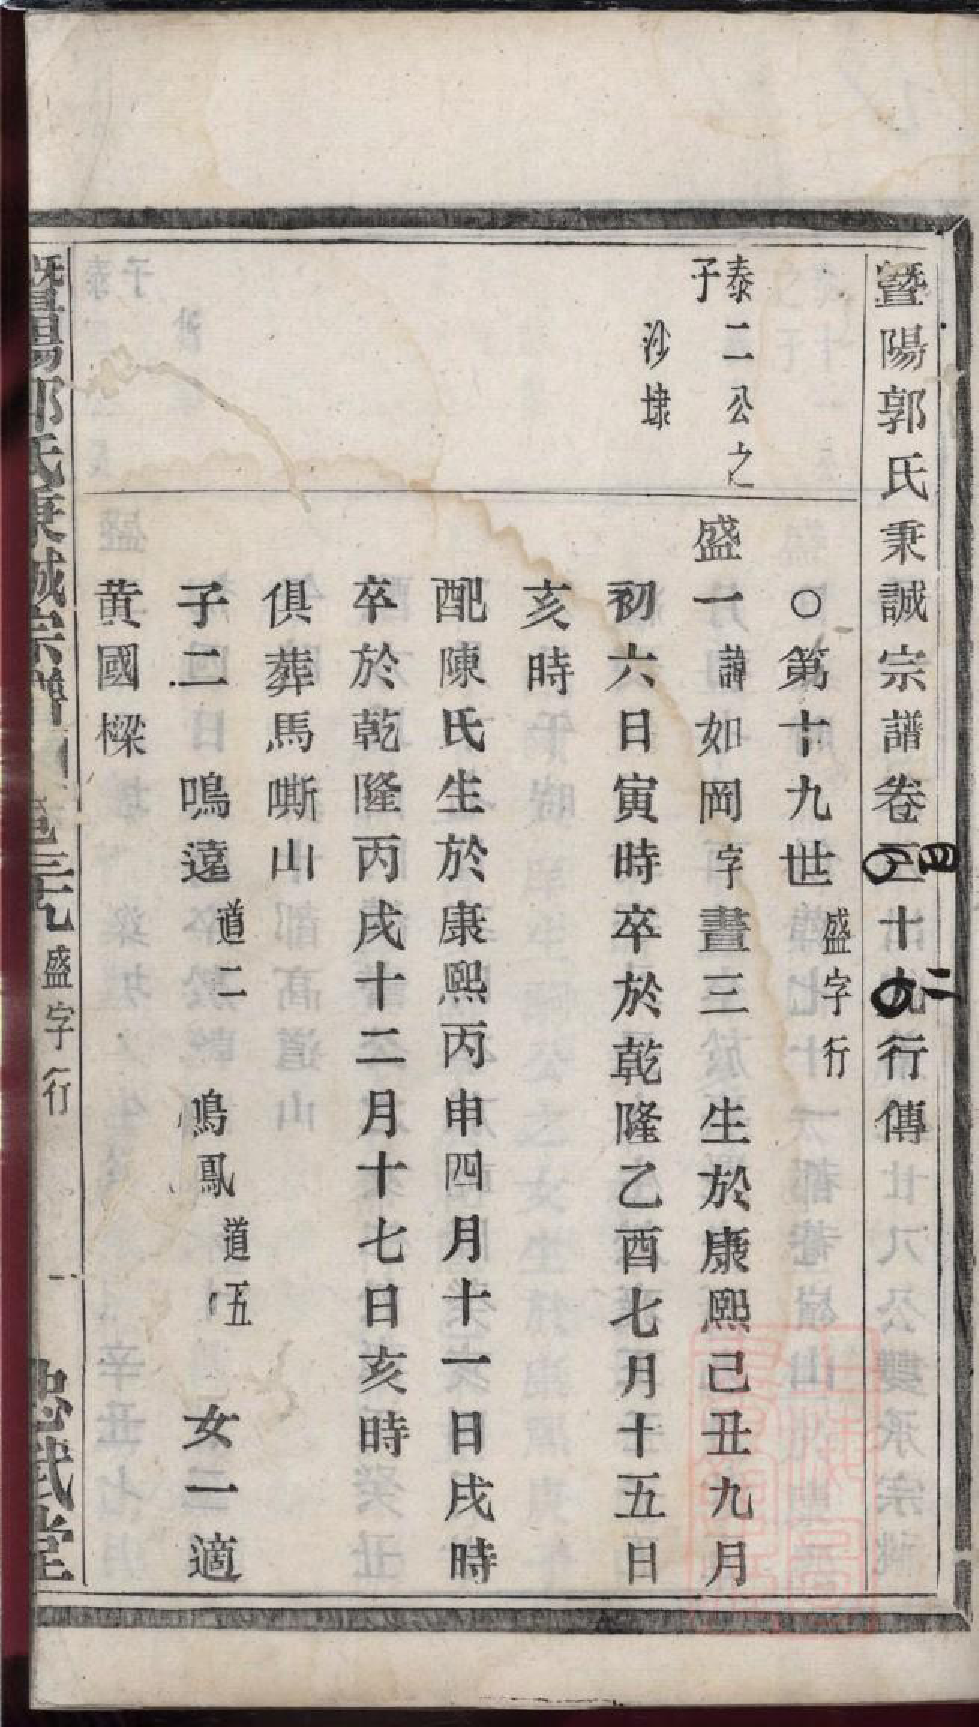 暨陽郭氏秉誠宗譜卷三十九行傳
四
二
○第十九世盛字行
泰二公之
子
沙埭
盛一諱如岡字晝三生於康熙己丑九月
初六日寅時卒於乾隆乙酉七月十五日
亥時
配陳氏生於康熙丙申四月十一日戌時
卒於乾隆丙戌十二月十七日亥時
俱葬馬嘶山
子二鳴遠道二鳴鳳道五女二適
黃國樑
暨陽郭氏秉誠宗譜 卷三十九 盛字行 一 忠武堂